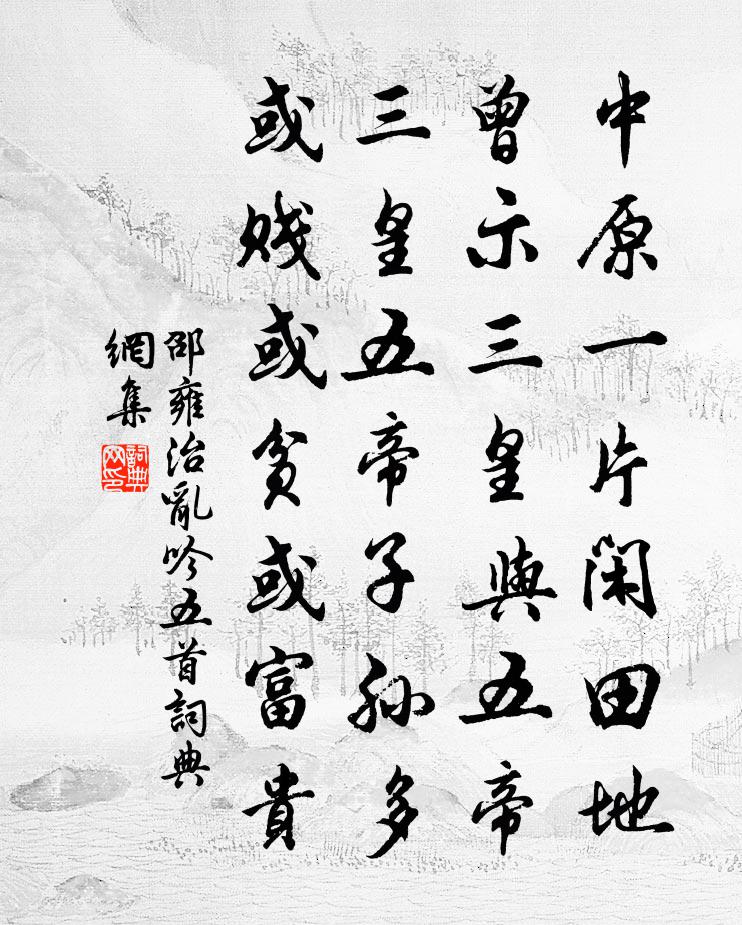 中原一片閑田地
曾示三皇與五帝
三皇五帝子孫多
或賤或貧或富貴
邵雍治亂吟五首詞典
網集
詞典
网印